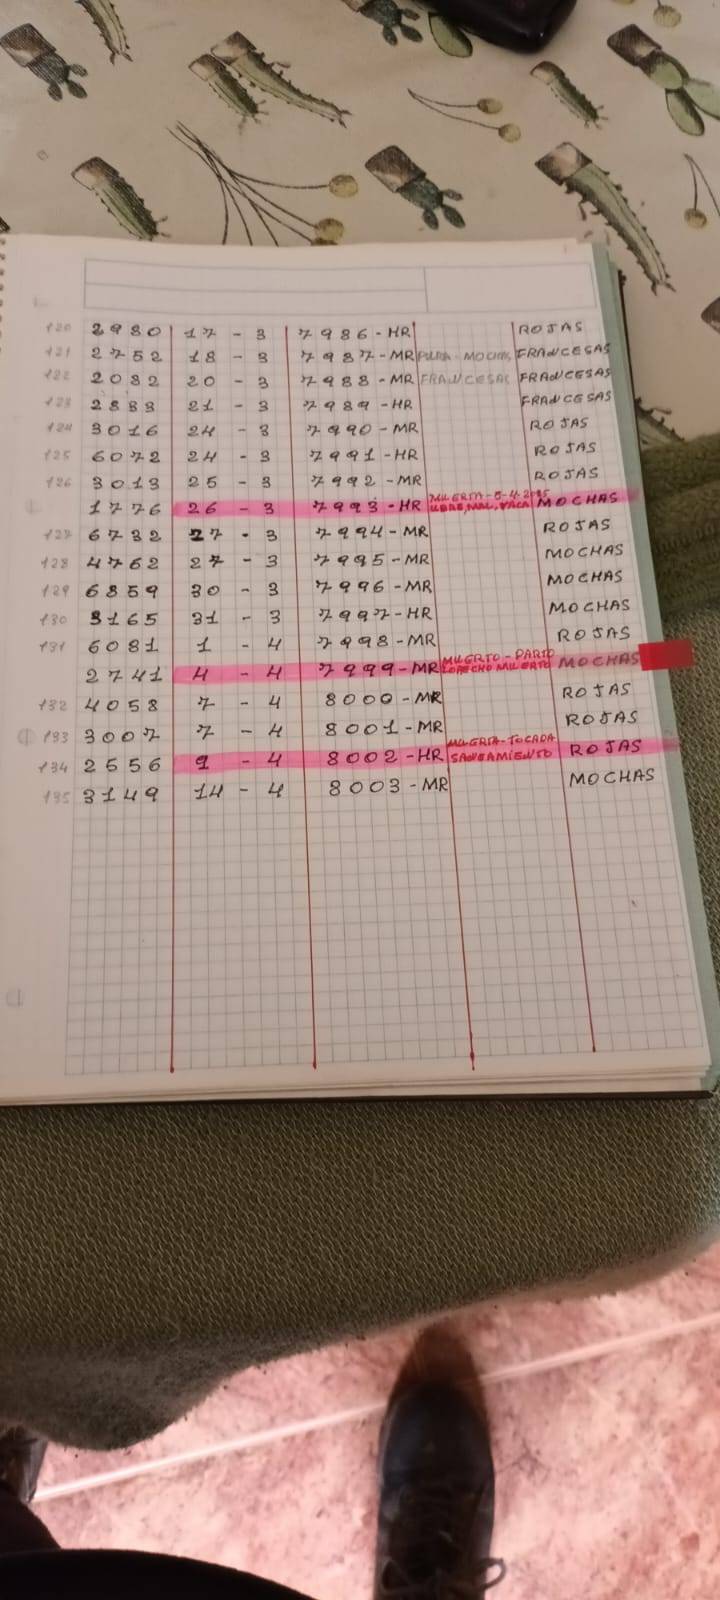 120 2980 17 - 3 7986 - HR ROJAS
121 2752 18 - 3 7987 - MR PURA - MOCHAS FRANCESAS
122 2082 20 - 3 7988 - MR FRANCESAS FRANCESAS
123 2883 21 - 3 7989 - HR FRANCESAS
124 3016 24 - 3 7990 - MR ROJAS
125 6072 24 - 3 7991 - HR ROJAS
126 3013 25 - 3 7992 - MR ROJAS
1776 26 - 3 7993 - HR MUERTA - 5-4-2025 UBRE, MAL, VACA MOCHAS
127 6732 27 - 3 7994 - MR ROJAS
128 4762 27 - 3 7995 - MR MOCHAS
129 6859 30 - 3 7996 - MR MOCHAS
130 3165 31 - 3 7997 - HR MOCHAS
131 6081 1 - 4 7998 - MR ROJAS
2741 4 - 4 7999 - MR MUERTO - PARTO MUERTO MOCHAS
132 4058 7 - 4 8000 - MR ROJAS
133 3007 7 - 4 8001 - MR ROJAS
134 2556 9 - 4 8002 - HR MUERTA - TOCADA SANEAMIENTO ROJAS
135 3149 14 - 4 8003 - MR MOCHAS